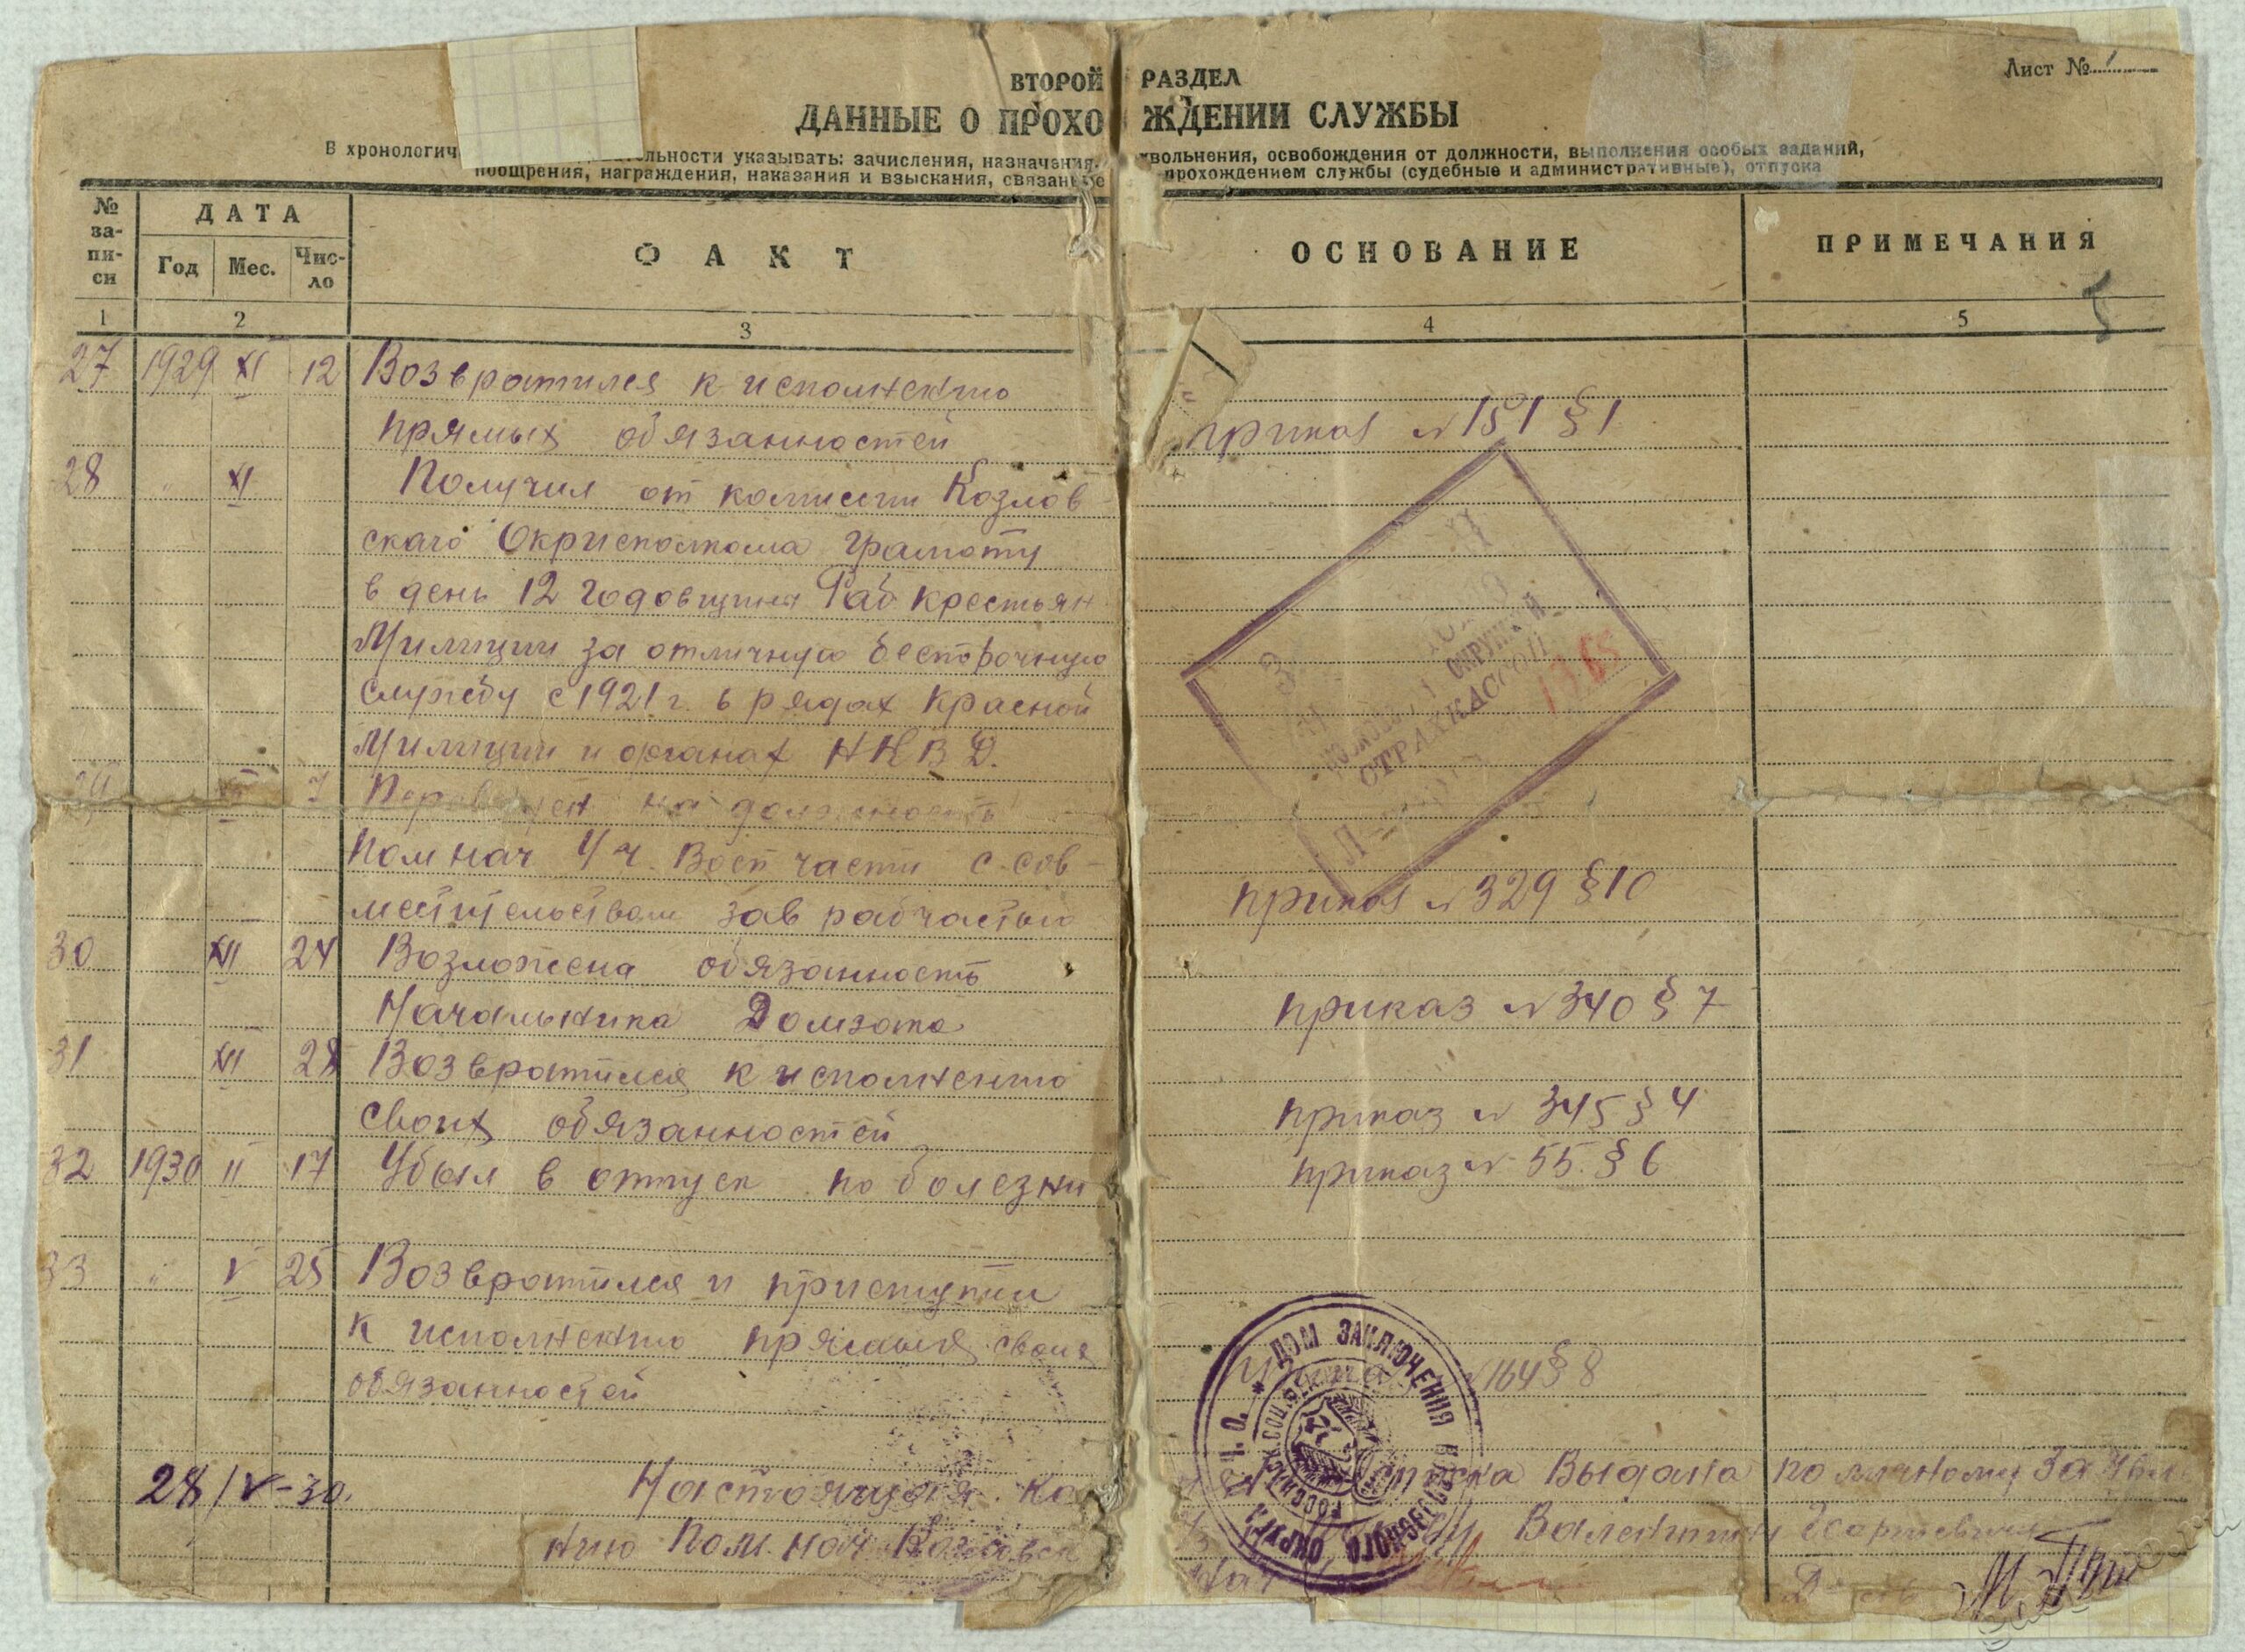 Лист № 1
ВТОРОЙ РАЗДЕЛ
ДАННЫЕ О ПРОХОЖДЕНИИ СЛУЖБЫ
В хронологич льности указывать: зачисления, назначения, увольнения, освобождения от должности, выполнения особых заданий,
поощрения, награждения, наказания и взыскания, связанные прохождением службы (судебные и административные), отпуска
№ за-пи-си ДАТА ФАКТ ОСНОВАНИЕ ПРИМЕЧАНИЯ
Год Мес. Чис-ло
1 2 3 4 5
27 1929 XI 12 Возвратился к исполнению
прямых обязанностей приказ № 151 § 1
28 " XI Получил от комиссии Козлов-
ского Окрисполкома грамоту
в день 12 годовщины Раб крестьян
Милиции за отличную беспорочную
службу с 1921 г. в рядах Красной
Милиции и органах НКВД.
29 XII 7 на должность
Пом нач Уч. Восп части с сов-
местительством зав рабчастью приказ № 329 § 10
30 XII 24 Возложена обязанность
Начальника Домзака приказ № 340 § 7
31 XII 28 Возвратился к исполнению
своих обязанностей приказ № 345 § 4
32 1930 II 17 Убыл в отпуск по болезни приказ № 55 § 6
33 " V 25 Возвратился и приступил
к исполнению прямых своих
обязанностей № 164 § 8
ОКРУЖН
СТРАХКАССОЙ
1365
ДОМ ЗАКЛЮЧЕНИЯ КОЗЛОВСКОГО ОКРУГА
28/V-30. Настоящая выдана по личному
Пом. нач Козловск Валентин